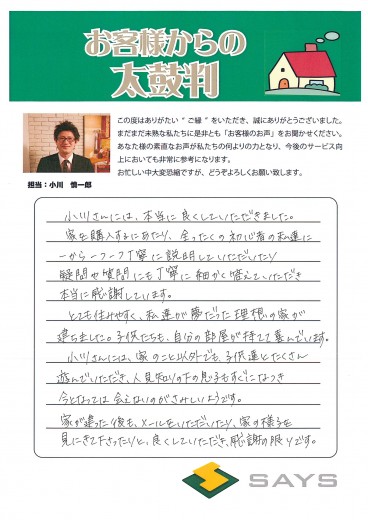 お客様からの
太鼓判
この度はありがたい“ご縁”をいただき、誠にありがとうございました。
まだまだ未熟な私たちに是非とも「お客様のお声」をお聞かせください。
あなた様の素直なお声が私たちの何よりの力となり、今後のサービス向
上においても非常に参考になります。
お忙しい中大変恐縮ですが、どうぞよろしくお願い致します。
担当：小川 慎一郎
小川さんには、本当に良くしていただきました。
家を購入するにあたり、全ったくの初心者の私達に
一から一つ一つ丁寧に説明していただいたり
疑問や質問にも丁寧に細かく答えていただき
本当に感謝しています。
とても住みやすく、私達が夢だった理想の家が
建ちました。子供たちも、自分の部屋が持てて喜んでいます。
小川さんには、家のこと以外でも、子供達とたくさん
遊んでいただき、人見知りの下の息子もすぐになつき
今となっては会えないのがさみしいようです。
家が建った後も、メールをいただいたり、家の様子を
見にきて下さったりと、良くしていただき、感謝の限りです。
SAYS